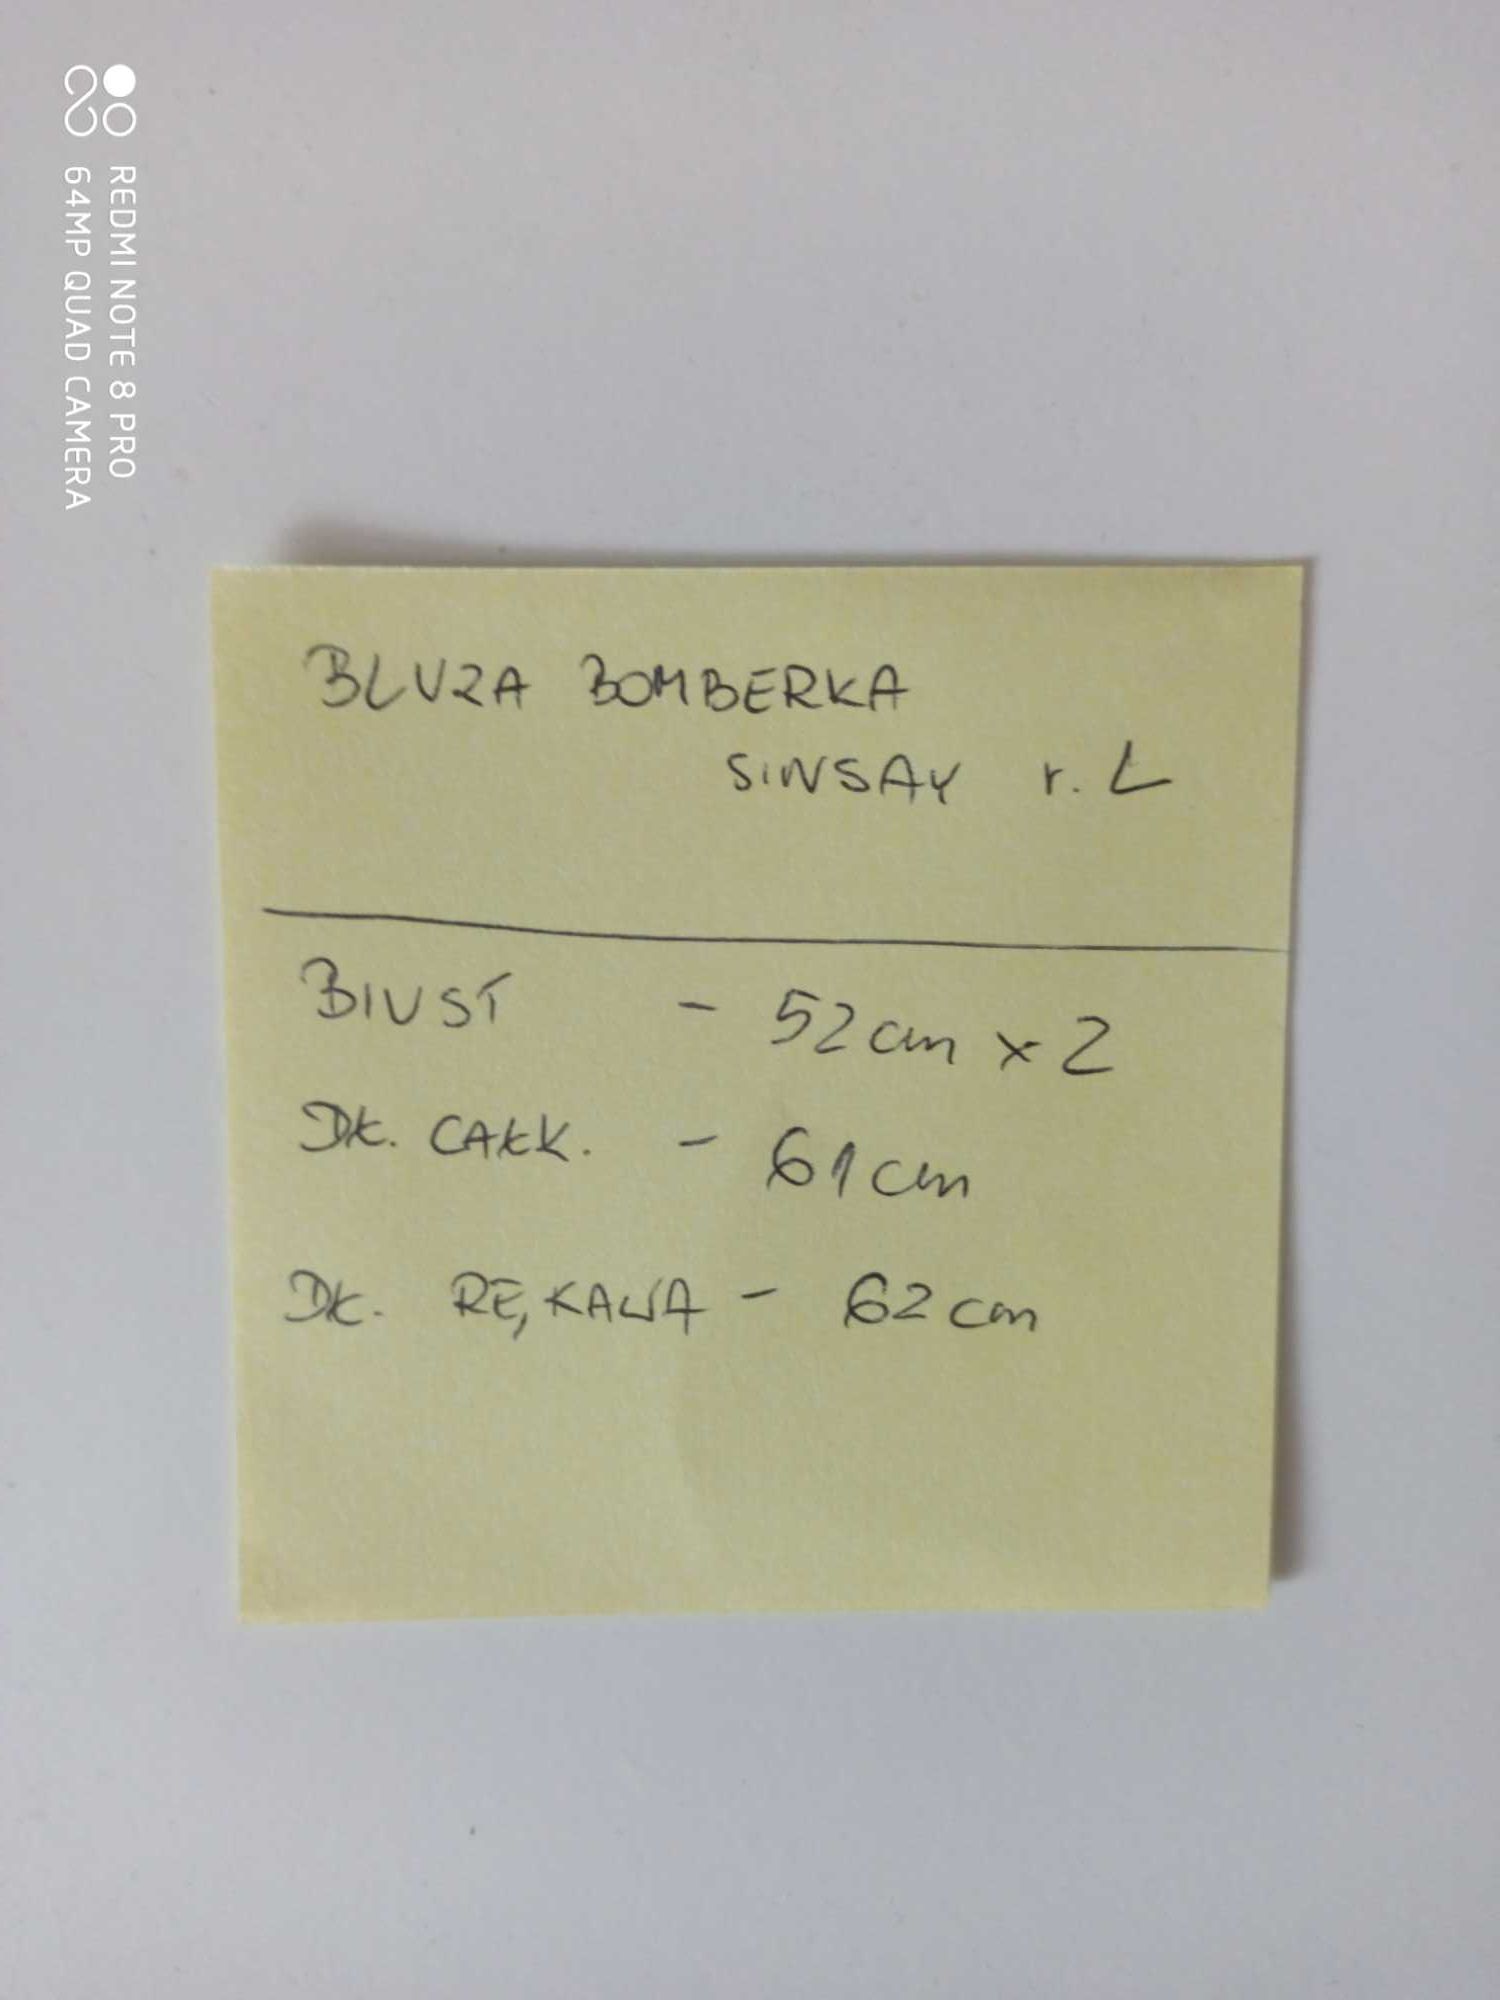 BLUZA BOMBERKA
SINSAY r. L
BIUST - 52cm x 2
DŁ. CAŁK. - 61cm
DŁ. RĘKAWA - 62cm
REDMI NOTE 8 PRO
64MP QUAD CAMERA